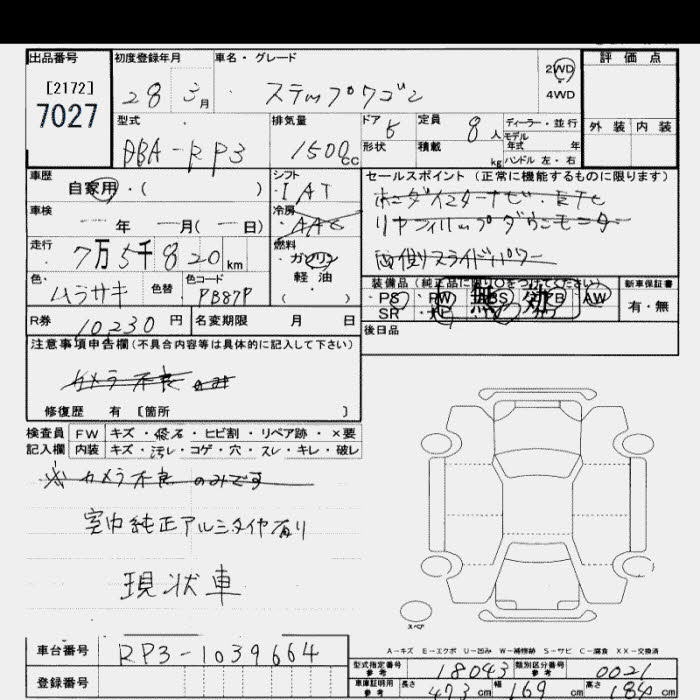 出品番号 初度登録年月 車名・グレード 2WD 評価点
[2172] 28 3月 ステップワゴン 4WD
7027
型式 排気量 ドア 5 定員 8人 ディーラー・並行 外装 内装
DBA-RP3 1500cc 形状 積載 kg モデル年式 年
ハンドル 左・右
車歴 シフト セールスポイント (正常に機能するものに限ります)
自家用・( ) IAT ホンダインターナビ・ETC
車検 年 月( 日) 冷房 AAC リヤフィルップダウンモニター
走行 7万5千820km 燃料 ガソリン 両側スライドパワー
軽油
( )
色 ムラサキ 色替 色コード PB87P 装備品 (純正品に限り○をつけてください) 新車保証書
・PS ・PW 無効 AW 有・無
SR
R券 10230円 名変期限 月 日 後日品
注意事項申告欄(不具合内容等は具体的に記入して下さい)
カメラ不良のみ
修復歴 有 [箇所 ]
検査員 FW キズ・飛石・ヒビ割・リペア跡・×要
記入欄 内装 キズ・汚レ・コゲ・穴・スレ・キレ・破レ
※カメラ不良のみです
室内純正アルミタイヤ有り
現状車
スペア
A-キズ E-エクボ U-凹み W-補修跡 S-サビ C-腐食 XX-交換済
車台番号 RP3-1039664
型式指定番号 参考 18043 類別区分番号 参考 0021
登録番号
車庫証明用 参考 長さ 473cm 幅 169cm 高さ 184cm